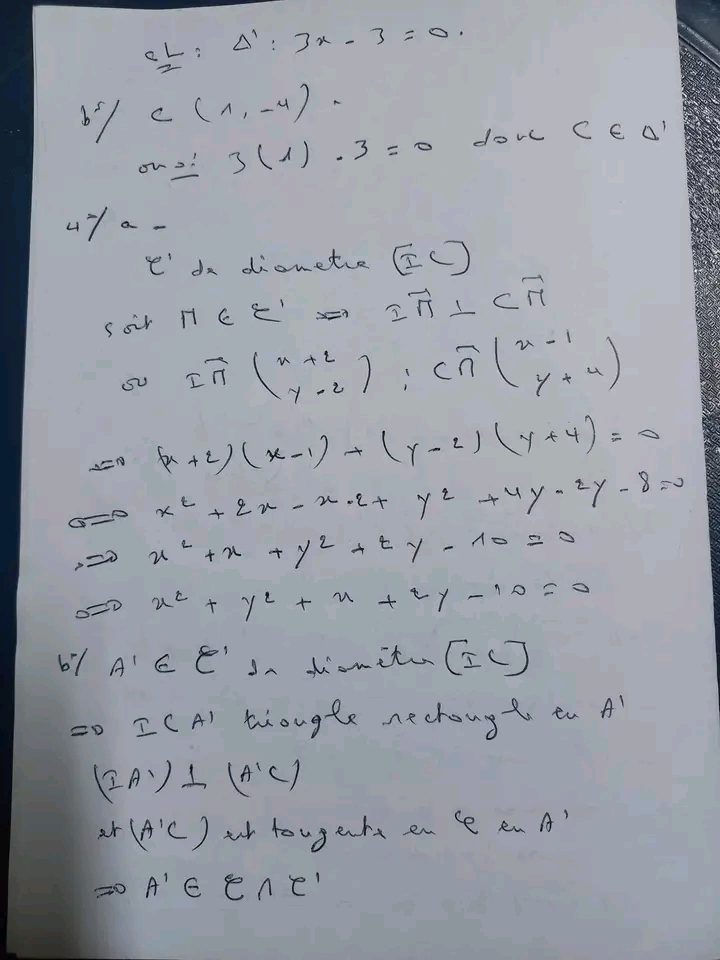 cL : Δ' : 3x - 3 = 0.
b°/ C (1, -4).
on a : 3(1) - 3 = 0 donc C ∈ Δ'
4°/ a -
ℭ' de diamètre [IC]
soit M ∈ ℭ' ⟺ IM⃗ ⊥ CM⃗
or IM⃗ (x + 2 ; y - 2) ; CM⃗ (x - 1 ; y + 4)
⟺ (x + 2)(x - 1) + (y - 2)(y + 4) = 0
⟺ x² + 2x - x - 2 + y² + 4y - 2y - 8 = 0
⟺ x² + x + y² + 2y - 10 = 0
⟺ x² + y² + x + 2y - 10 = 0
b°/ A' ∈ ℭ' de diamètre [IC]
⟹ ICA' triangle rectangle en A'
(IA') ⊥ (A'C)
et (A'C) est tangente en ℭ en A'
⟹ A' ∈ ℭ ∩ ℭ'